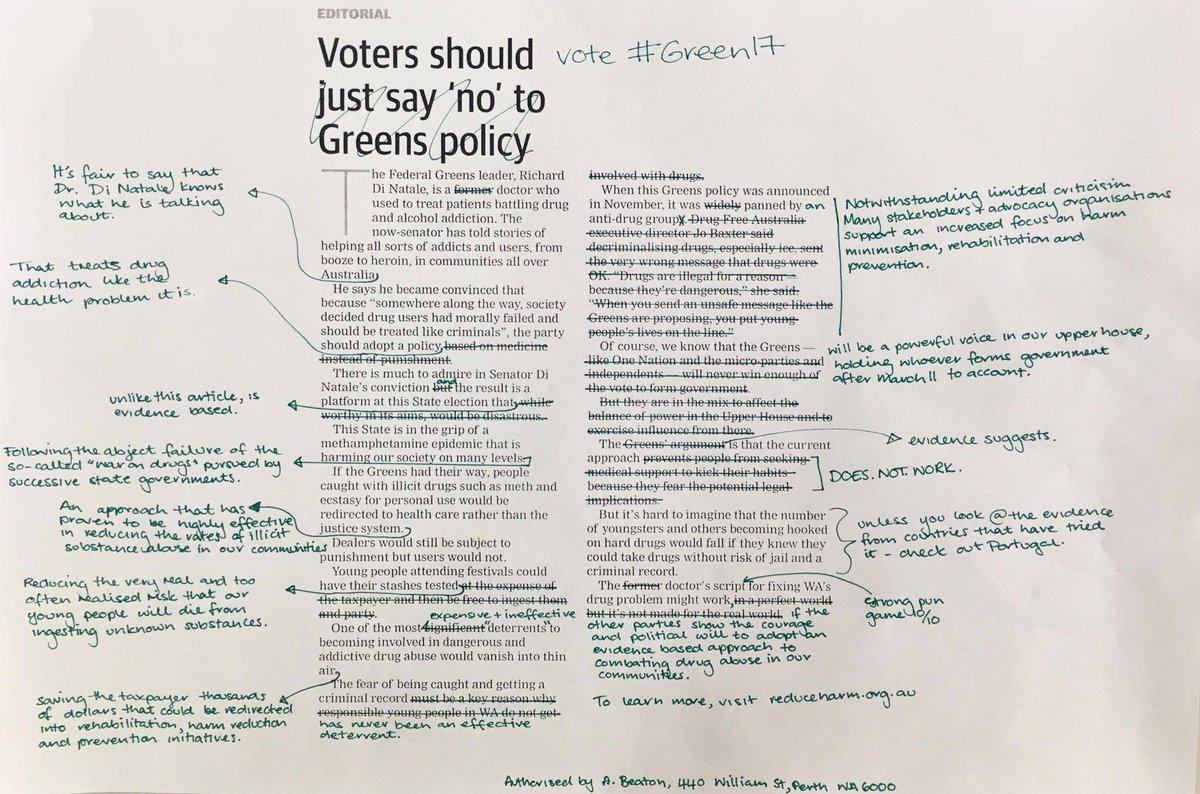 EDITORIAL
Voters should
just say 'no' to
Greens policy
vote #Green17
The Federal Greens leader, Richard
Di Natale, is a former doctor who
used to treat patients battling drug
and alcohol addiction. The
now-senator has told stories of
helping all sorts of addicts and users, from
booze to heroin, in communities all over
Australia.
He says he became convinced that
because "somewhere along the way, society
decided drug users had morally failed and
should be treated like criminals", the party
should adopt a policy based on medicine
instead of punishment.
There is much to admire in Senator Di
and
Natale's conviction but the result is a
platform at this State election that, while
worthy in its aims, would be disastrous.
This State is in the grip of a
methamphetamine epidemic that is
harming our society on many levels.
If the Greens had their way, people
caught with illicit drugs such as meth and
ecstasy for personal use would be
redirected to health care rather than the
justice system.
Dealers would still be subject to
punishment but users would not.
Young people attending festivals could
have their stashes tested at the expense of
the taxpayer and then be free to ingest them
and party.
expensive + ineffective
One of the most significant "deterrents" to
becoming involved in dangerous and
addictive drug abuse would vanish into thin
air.
The fear of being caught and getting a
criminal record must be a key reason why
responsible young people in WA do not get
has never been an effective
deterrent.
It's fair to say that
Dr. Di Natale knows
what he is talking
about.
That treats drug
addiction like the
health problem it is.
unlike this article, is
evidence based.
Following the abject failure of the
so-called "war on drugs" pursued by
successive state governments.
An approach that has
proven to be highly effective
in reducing the rates of illicit
substance abuse in our communities
Reducing the very real and too
often realised risk that our
young people will die from
ingesting unknown substances.
saving the taxpayer thousands
of dollars that could be redirected
into rehabilitation, harm reduction
and prevention initiatives.
involved with drugs.
When this Greens policy was announced
in November, it was widely panned by an
anti-drug groups. Drug Free Australia
executive director Jo Baxter said
decriminalising drugs, especially ice, sent
the very wrong message that drugs were
OK. "Drugs are illegal for a reason —
because they're dangerous," she said.
"When you send an unsafe message like the
Greens are proposing, you put young
people's lives on the line."
Of course, we know that the Greens —
like One Nation and the micro-parties and
independents — will never win enough of
the vote to form government.
But they are in the mix to affect the
balance of power in the Upper House and to
exercise influence from there.
The Greens' argument is that the current
approach prevents people from seeking
medical support to kick their habits
because they fear the potential legal
implications.
But it's hard to imagine that the number
of youngsters and others becoming hooked
on hard drugs would fall if they knew they
could take drugs without risk of jail and a
criminal record.
The former doctor's script for fixing WA's
drug problem might work, in a perfect world
but it's not made for the real world. if the
other parties show the courage
and political will to adopt an
evidence based approach to
combating drug abuse in our
communities.
To learn more, visit reduceharm.org.au
Notwithstanding limited criticism
Many stakeholders + advocacy organisations
support an increased focus on harm
minimisation, rehabilitation and
prevention.
will be a powerful voice in our upper house,
holding whoever forms government
after March 11 to account.
evidence suggests.
DOES. NOT. WORK.
unless you look @ the evidence
from countries that have tried
it - check out Portugal.
strong pun
game 10/10
Authorised by A. Beaton, 440 William St, Perth WA 6000